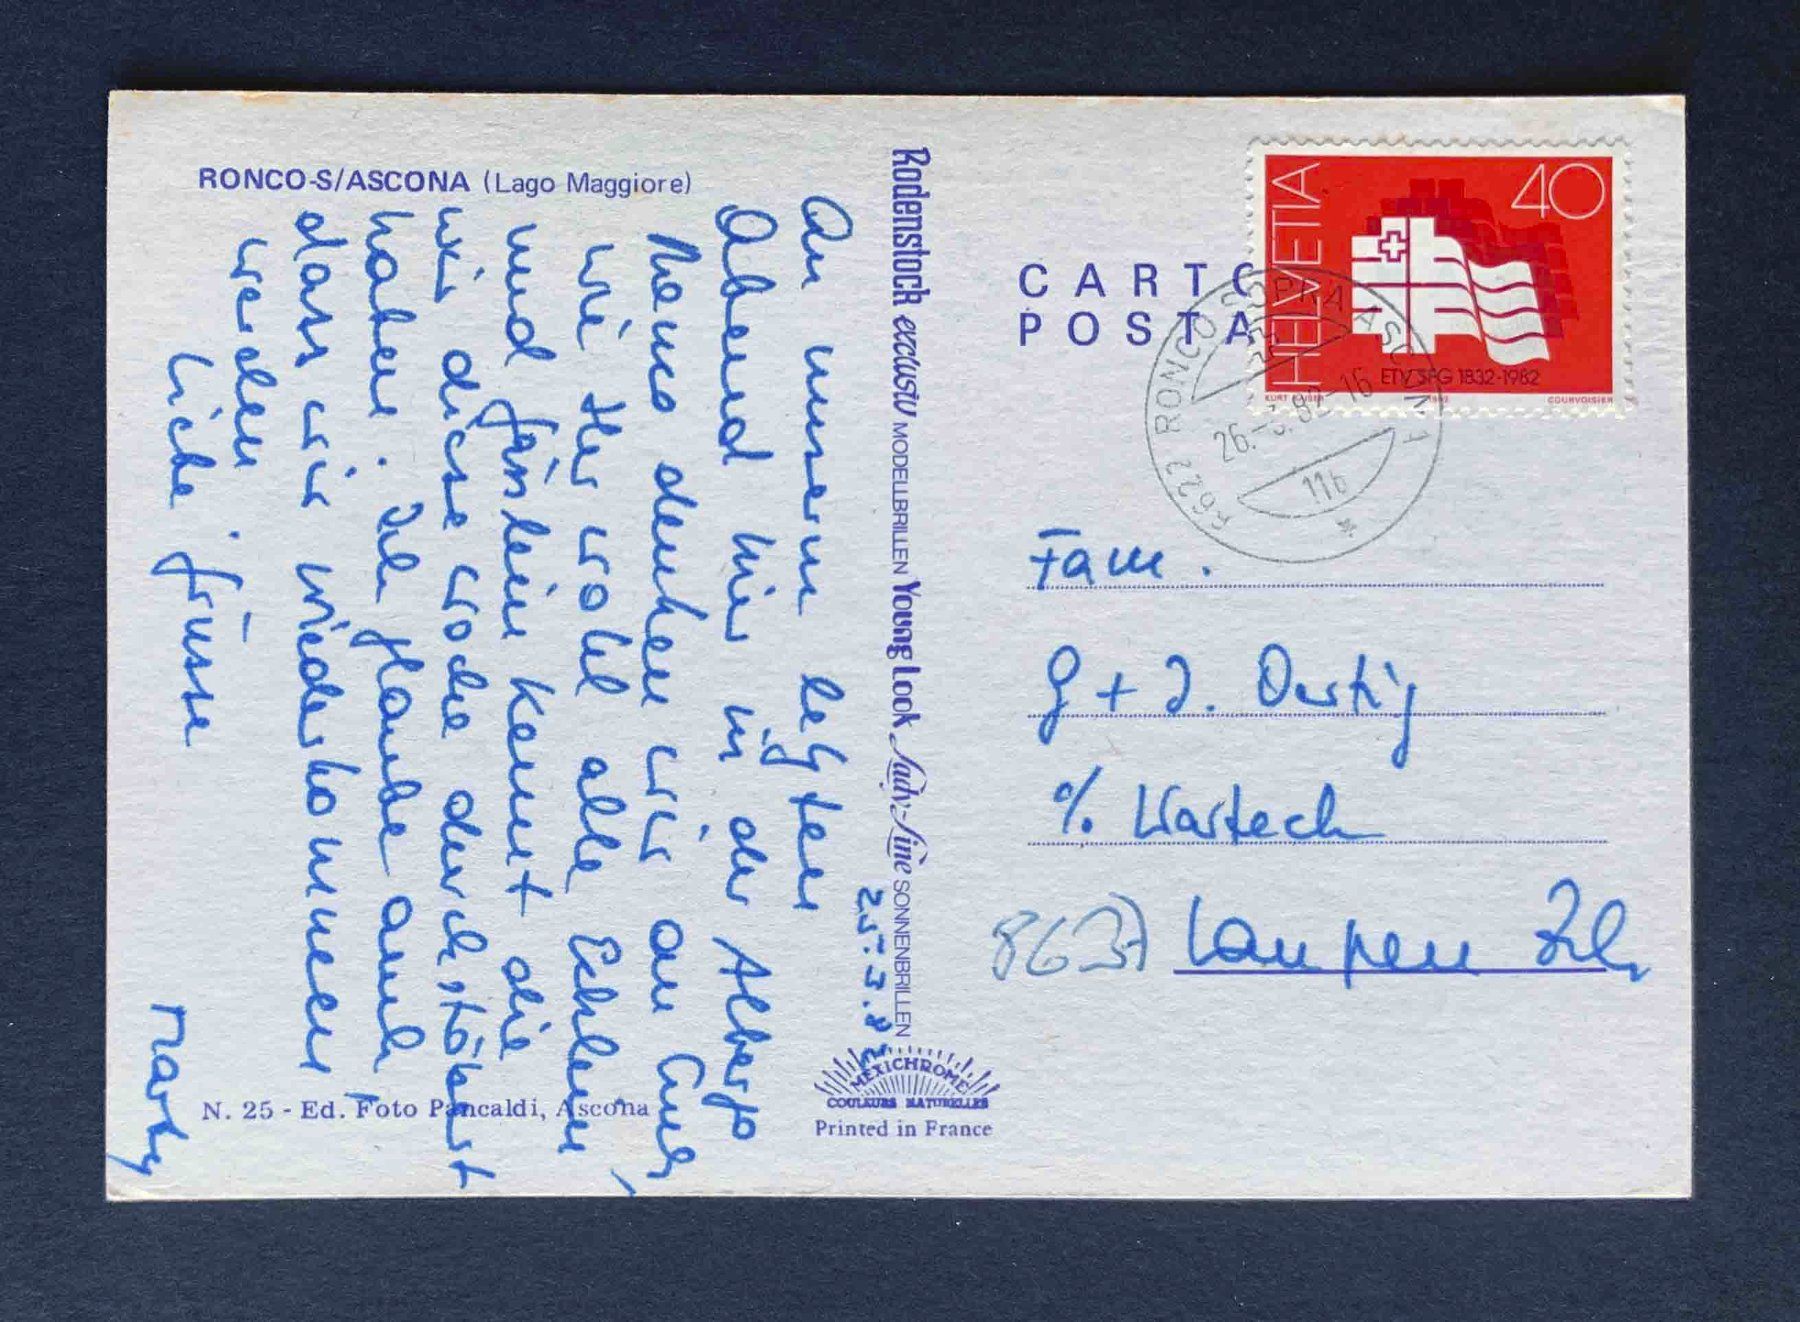 RONCO-S/ASCONA (Lago Maggiore)
25.3.82
An unserm letzten
Abend hier in der Albergo
Ronco denken wir an Euch,
wie Ihr wohl alle Ecklein
und Gässlein kennt die
wir diese Woche durchstöbert
haben. Ich glaube auch,
dass wir wiederkommen
werden.
Liebe Grüsse
Marty
N. 25 - Ed. Foto Pancaldi, Ascona
Rodenstock exclusiv MODELLBRILLEN Young Look Lady-Line SONNENBRILLEN
MEXICHROME
COULEURS NATURELLES
Printed in France
CARTO
POSTA
HELVETIA
40
ETV SFG 1832-1982
KURT 1982 COURVOISIER
6622 RONCO SOPRA ASCONA 1
26.-3.82-16
11b
Fam.
G + J. Oertig
c/o Warteck
8637 Laupen Zh.